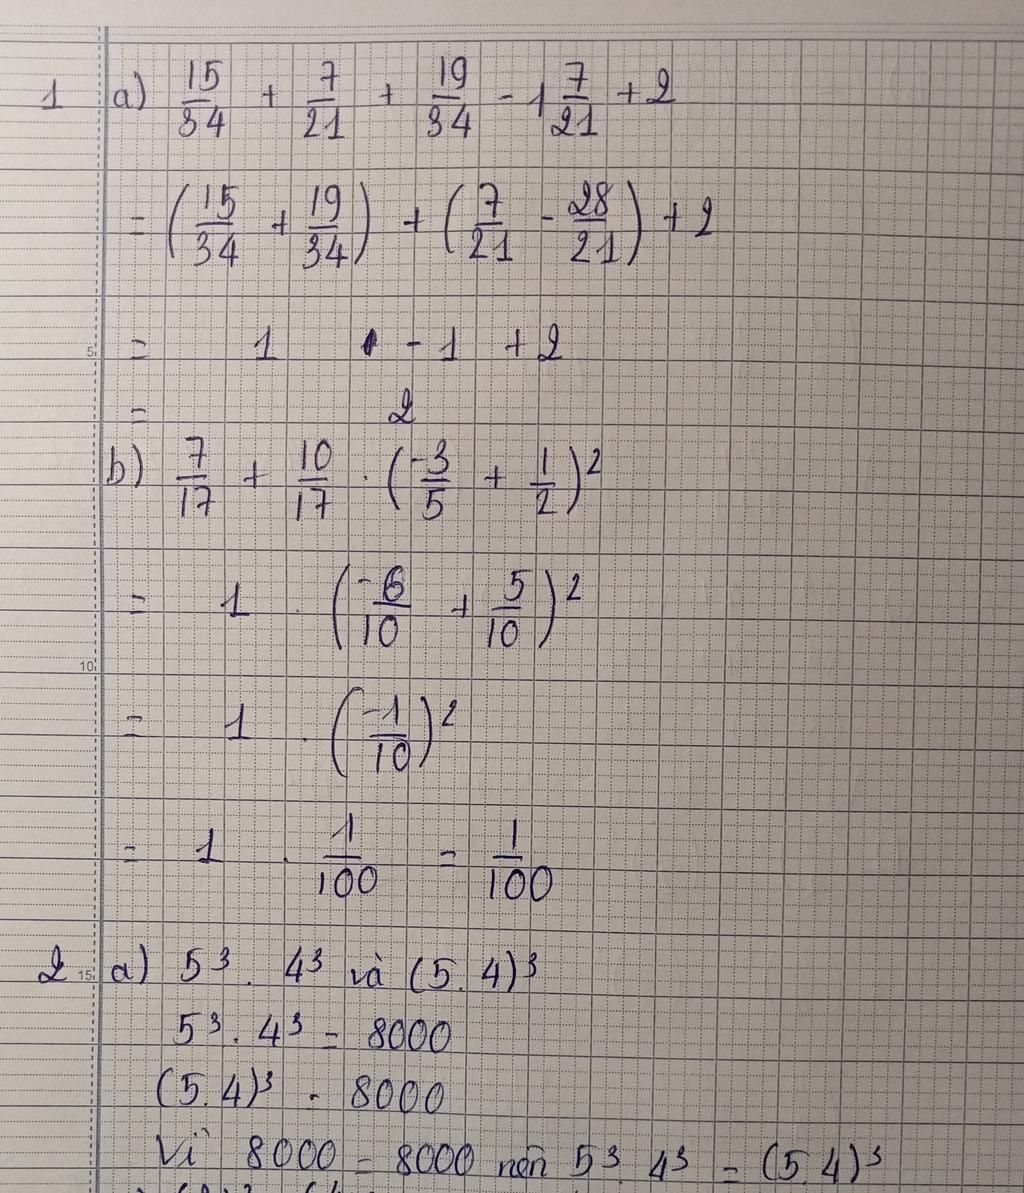 1 a) 15/34 + 7/21 + 19/34 - 1 7/21 + 2
= (15/34 + 19/34) + (7/21 - 28/21) + 2
5 = 1 - 1 + 2
= 2
b) 7/17 + 10/17 . (-3/5 + 1/2)²
= 1 . (-6/10 + 5/10)²
10
= 1 . (-1/10)²
= 1 . 1/100 = 1/100
2 15 a) 5³ . 4³ và (5.4)³
5³ . 4³ = 8000
(5.4)³ = 8000
Vì 8000 = 8000 nên 5³ 4³ = (5.4)³